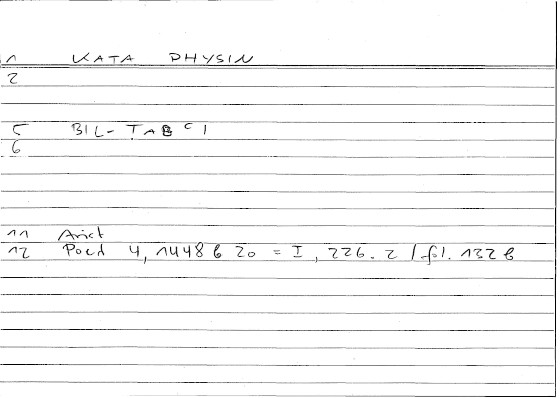 1 KATA PHYSIN
2
5 BIL-TABCI
6
11 Arist
12 Poet 4, 1448 b 20 = I, 226.2 / fol. 132 b